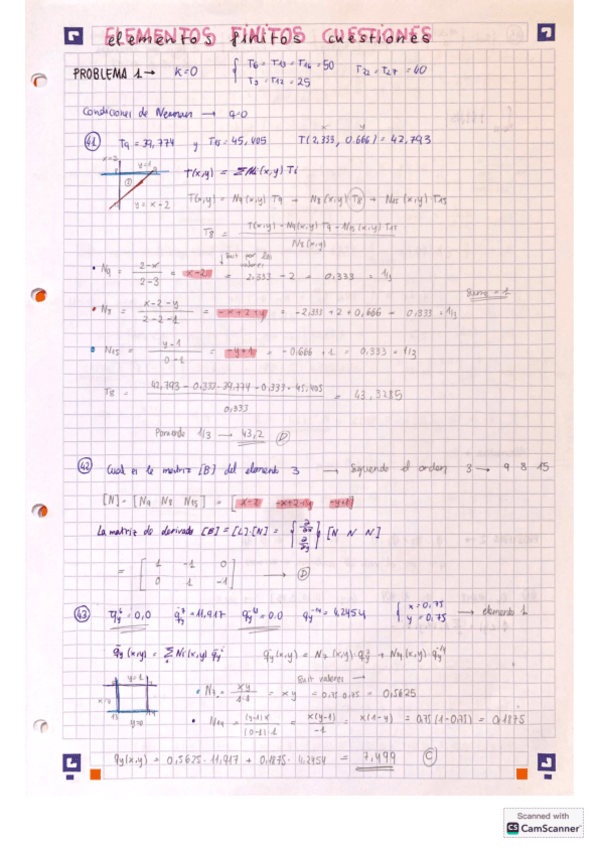 ELEMENTOS FINITOS CUESTIONES
PROBLEMA 1 → K=0 { T6 = T13 = T16 = 50 T22 = T27 = 40
T3 = T12 = 25
Condiciones de Neuman → q=0
41 T9 = 39,774 y T15 = 45,405 T(2,333, 0.666) = 42,793
x y
x=2 y=1
T(x,y) = ΣNi(x,y) Ti
① y = x-2
T(x,y) = N9(x,y) T9 + N8(x,y) T8 + N15(x,y) T15
T8 = T(x,y) - N9(x,y) T9 - N15(x,y) T15 / N8(x,y)
↓ Suit por los valores
• N9 = 2-x / 2-3 = x-2 = 2,333 - 2 = 0,333 = 1/3
Suma = 1
• N8 = x-2-y / 2-2-1 = -x+2+y = -2,333 + 2 + 0,666 = 0,333 = 1/3
• N15 = y-1 / 0-1 = -y+1 = -0,666 + 1 = 0,333 = 1/3
T8 = 42,793 - 0,333·39,774 - 0,333·45,405 / 0,333 = 43,3285
Poniendo 1/3 → 43,2 D
42 Cual es la matriz [B] del element 3 → Siguendo el orden 3 → 9 8 15
[N] = [N9 N8 N15] = [x-2 -x+2+y -y+1]
La matriz de derivada [B] = [L]·[N] = { ∂/∂x ∂/∂y } [N N N]
= [ 1 -1 0
0 1 -1 ] → D
43 qy6 = 0,0 qy7 = 11,917 qy13 = 0.0 qy14 = 4,2454 { x = 0,75 → elemento 1
y = 0,75
qy(x,y) = Σ Ni(x,y) qyi qy(x,y) = N7(x,y)·qy7 + N14(x,y)·qy14
y=1 Suit valores →
x=0 • N7 = xy / 1·1 = xy = 0,75·0,75 = 0,5625
13 14 y=0 • N14 = (y-1)x / (0-1)·1 = x(y-1) / -1 = x(1-y) = 0,75(1-0,75) = 0,1875
qy(x,y) = 0,5625·11,917 + 0,1875·4,2454 = 7,499 C
Scanned with
CS CamScanner